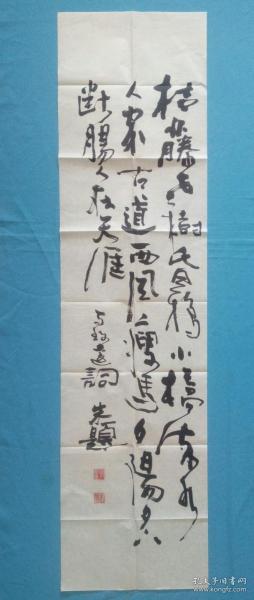 枯藤老樹昏鴉小橋流水
人家古道西風瘦馬夕陽西下
斷腸人在天涯
馬致遠詞 朱題
孔夫子旧书网